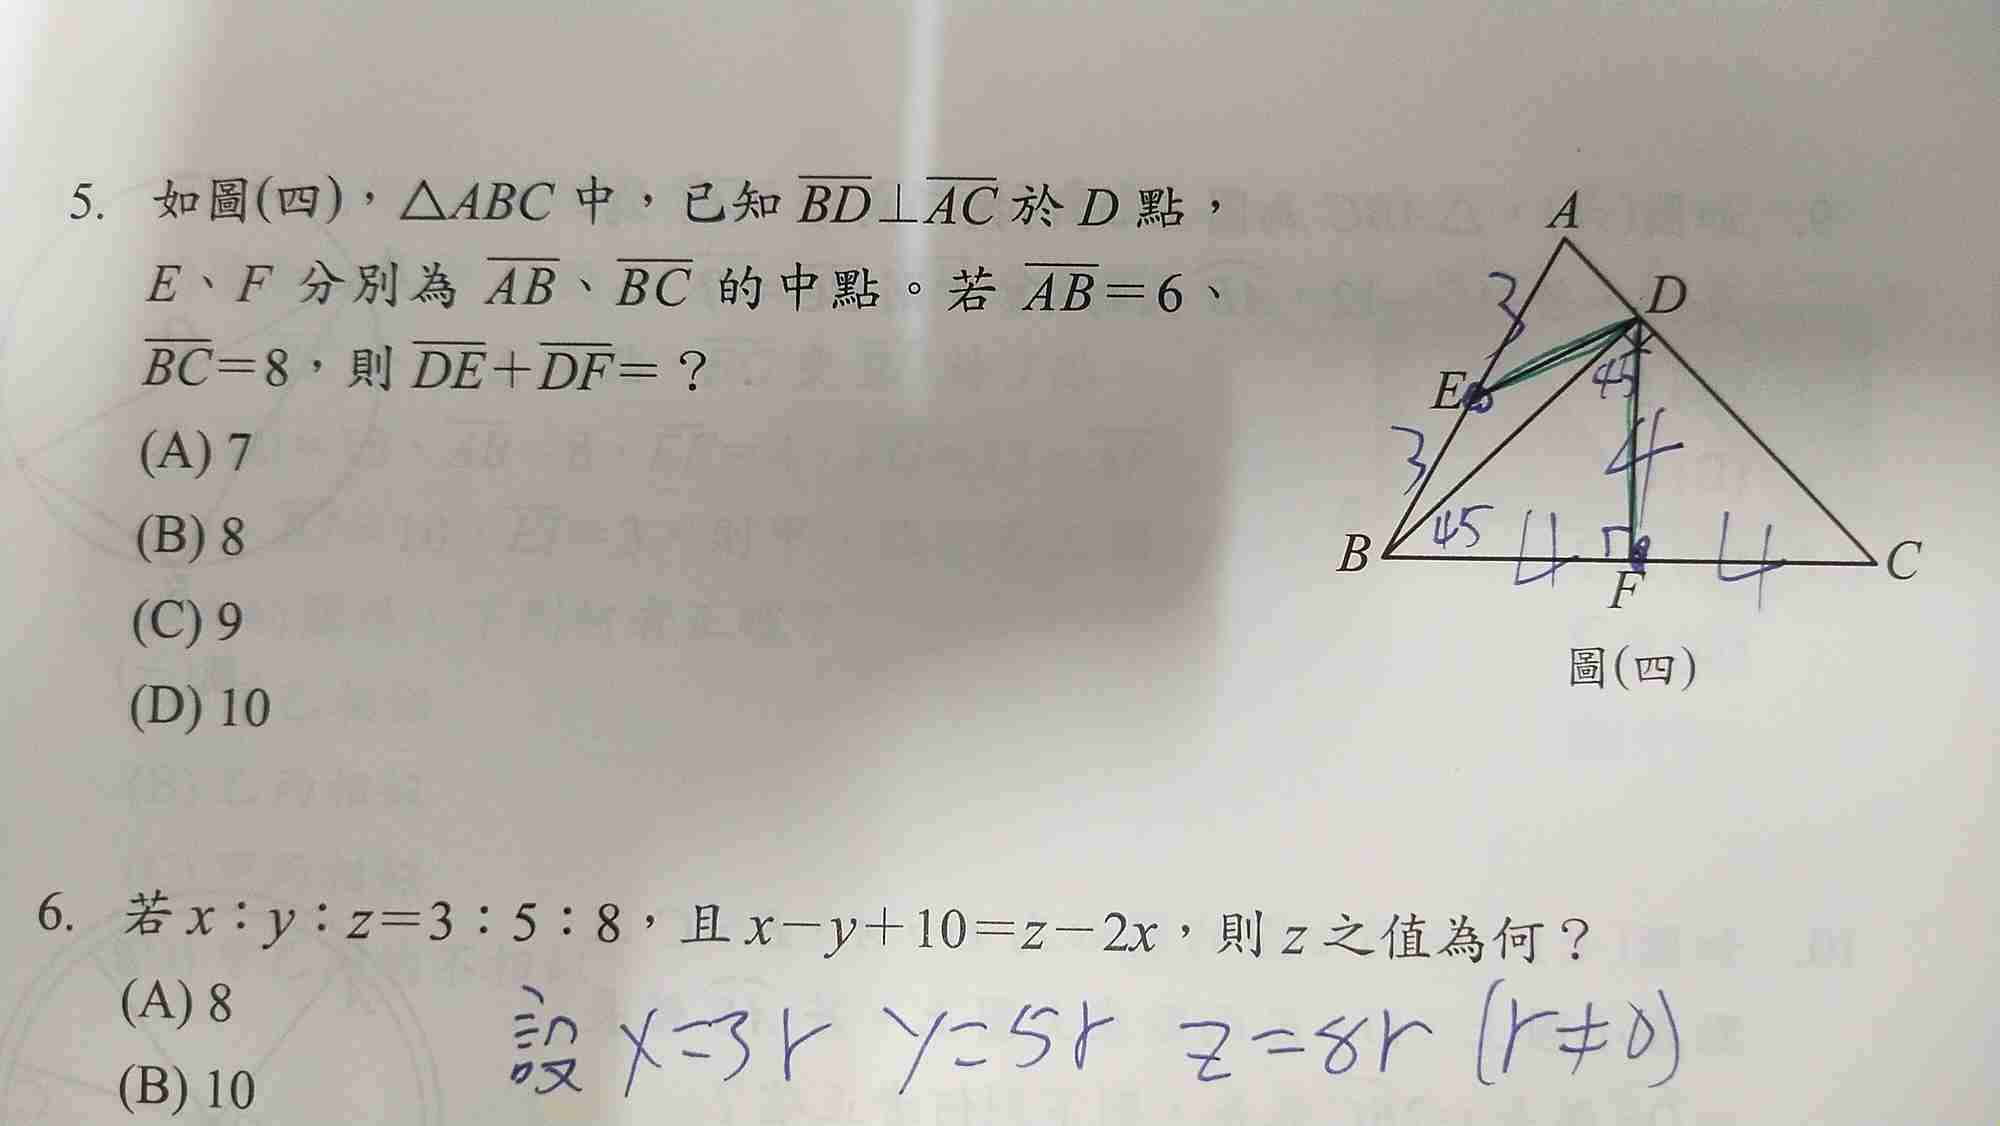 5. 如圖(四)，△ABC 中，已知 BD⊥AC 於 D 點，
E、F 分別為 AB、BC 的中點。若 AB=6、
BC=8，則 DE+DF=？
(A) 7
(B) 8
(C) 9
(D) 10
A
D
3
E
45
3
4
B
45
4
4
F
C
圖(四)
6. 若 x：y：z=3：5：8，且 x−y+10=z−2x，則 z 之值為何？
(A) 8
設 x=3r y=5r z=8r (r≠0)
(B) 10